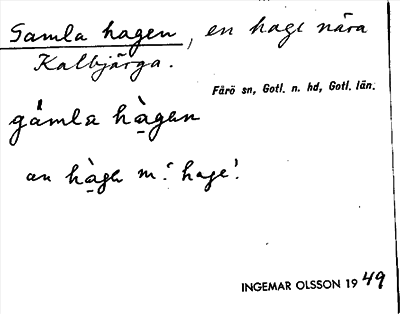 Gamla hagen, en hage nära
Kalbjärga.
Fårö sn, Gotl. n. hd, Gotl. län.
gåmla hàgen
an hàge m. 'hage'.
INGEMAR OLSSON 1949